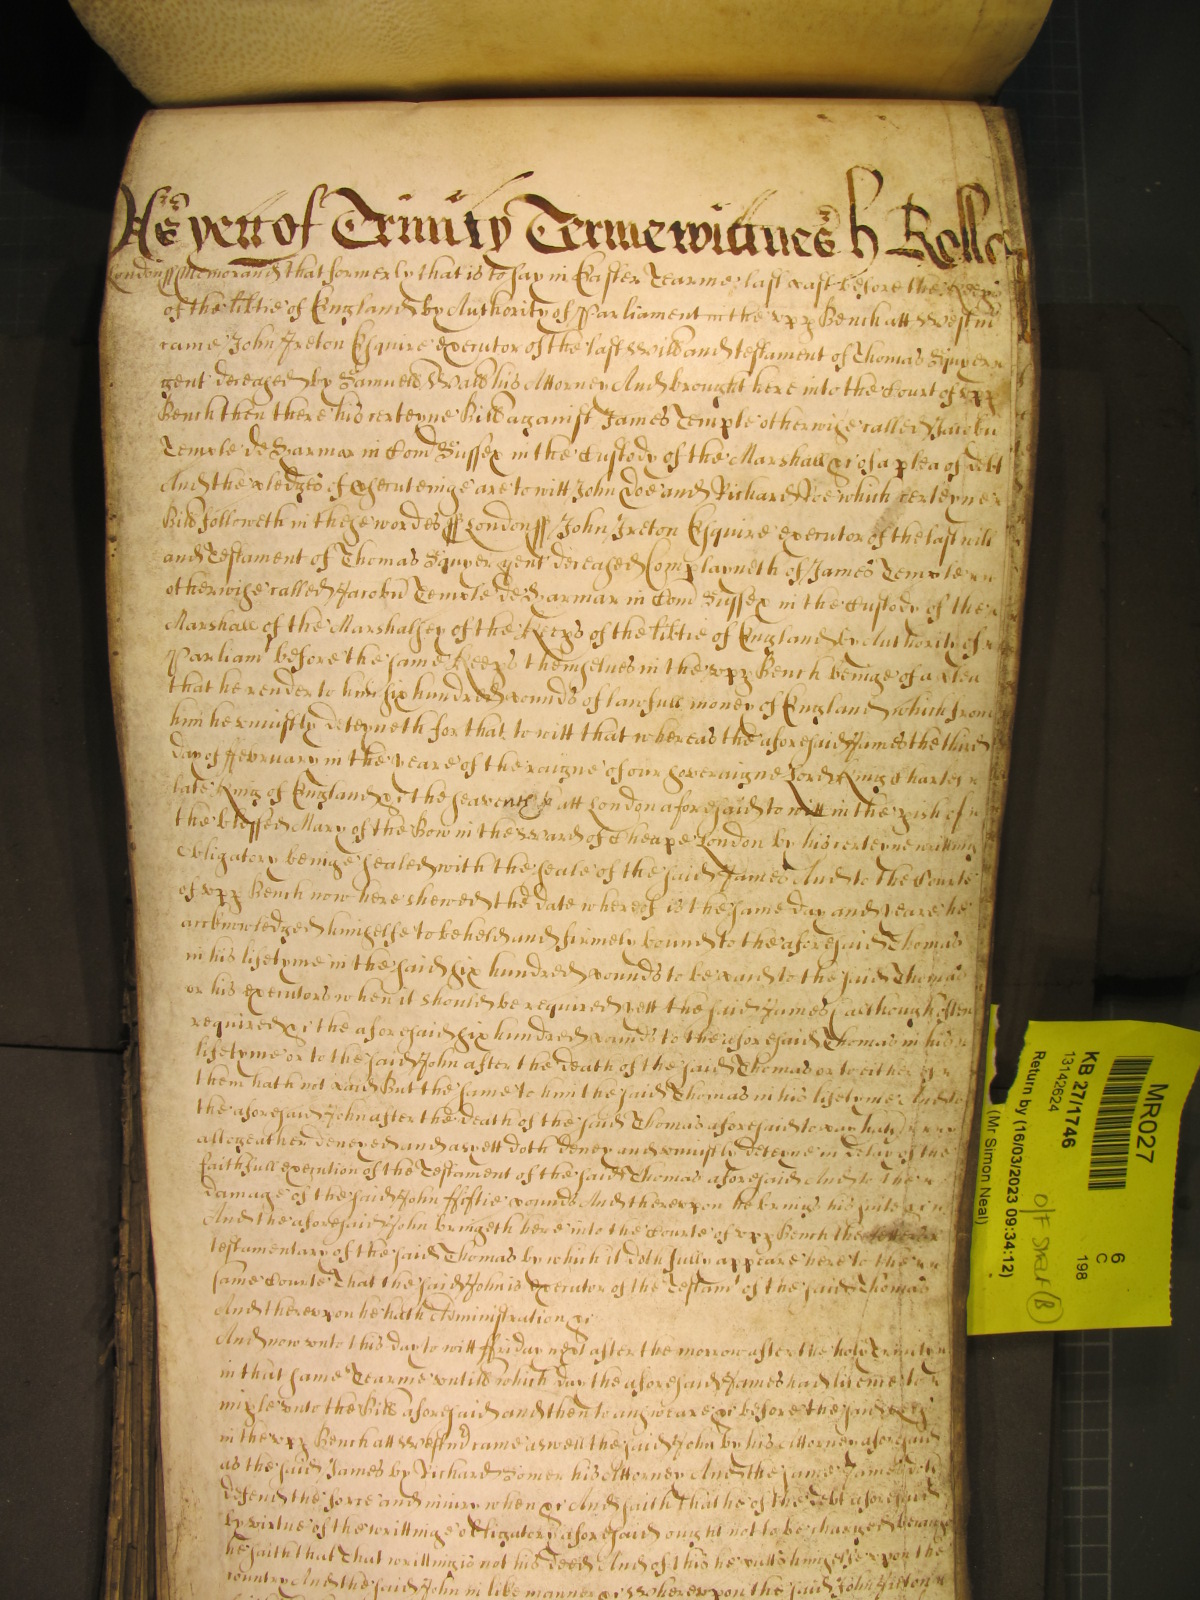 As yett of Trinity Terme wittnes H Rolle
Londonss Memorand that formerly that is to say in Easter Tearme last past before the Keeps
of the lib'tie of England by Authority of Parliament in the upp Bench att Westm
came John Ireton Esquire executor of the last Will and testament of Thomas Squyer
gent deceased by Samuell Wall his Attorney And brought here into the Court of upp
Bench then there his certeyne Bill against James Temple otherwise called Jacobu
Temple de in Com Sussex in the Custody of the Marshall &c of a plea of debt
And the pledges of executeinge are to witt John Doe and Richard Roe which certeyne
Bill followeth in these wordes ss Londonss John Ireton Esquire executor of the last will
and Testament of Thomas Squyer gent deceased Complayneth of James Temple
otherwise called Jacobu Temple de in Com Sussex in the Custody of the
Marshall of the Marshalsey of the Keeps of the lib'tie of England by Authority of
Parliam' before the same Keeps themselves in the upp Bench beinge of a plea
that he render to him six hundred pounds of lawfull money of England which from
him he uniustly deteyneth for that to witt that whereas the aforesaid James the third
day of ffebruary in the yeare of the raigne of our soveraigne Lord King Charles
late King of England &c the seaventh att London aforesaid to witt in the pish of
the blessed Mary of the Bow in the Ward of Cheape London by his certeyne writting
Obligatory beinge sealed with the seale of the said James And to the Courte
of upp Bench now here shewed the date whereof is the same day and yeare he
acknowledged himselfe to be held and firmely bound to the aforesaid Thomas
in his lifetyme in the said six hundred pounds to be paid to the said Thomas
or his executors when it should be required yett the said James (although often
required &c the aforesaid six hundred pounds to the aforesaid Thomas in his
lifetyme or to the said John after the death of the said Thomas or to either of
them hath not paid But the same to him the said Thomas in his lifetyme And to
the aforesaid John after the death of the said Thomas aforesaid to pay hath
altogeather denyed and as yett doth deny and uniustly deteyne in delay of the
faithfull execution of the Testament of the said Thomas aforesaid And to the
damage of the said John fiftie pounds And thereupon he brings his suite &c
And the aforesaid John bringeth here into the Courte of upp Bench the letters
testamentary of the said Thomas by which it doth fully appeare here to the
same Courte That the said John is executor of the Testam' of the said Thomas
And thereupon he hath Administration &c
And now unto this day to witt ffriday next after the morrow after the holy Trinity
in that same Tearme untill which day the aforesaid James had licence to
imple unto the Bill aforesaid and then to answeare &c before the said Keeps
in the upp Bench att Westm' came aswell the said John by his Attorney aforesaid
as the said James by Richard Somer his Attorney And the same James doth
defend the force and iniury when &c And saith that he of the debt aforesaid
by virtue of the writtinge obligatory aforesaid ought not to be charged because
he saith that That writting is not his deed And of this he putts himselfe upon the
country And the said John in like manner &c Whereupon the said John Ireton
MR027
KB 27/1746
13142624
Return by (16/03/2023 09:34:12)
(Mr Simon Neal)
6
C
198